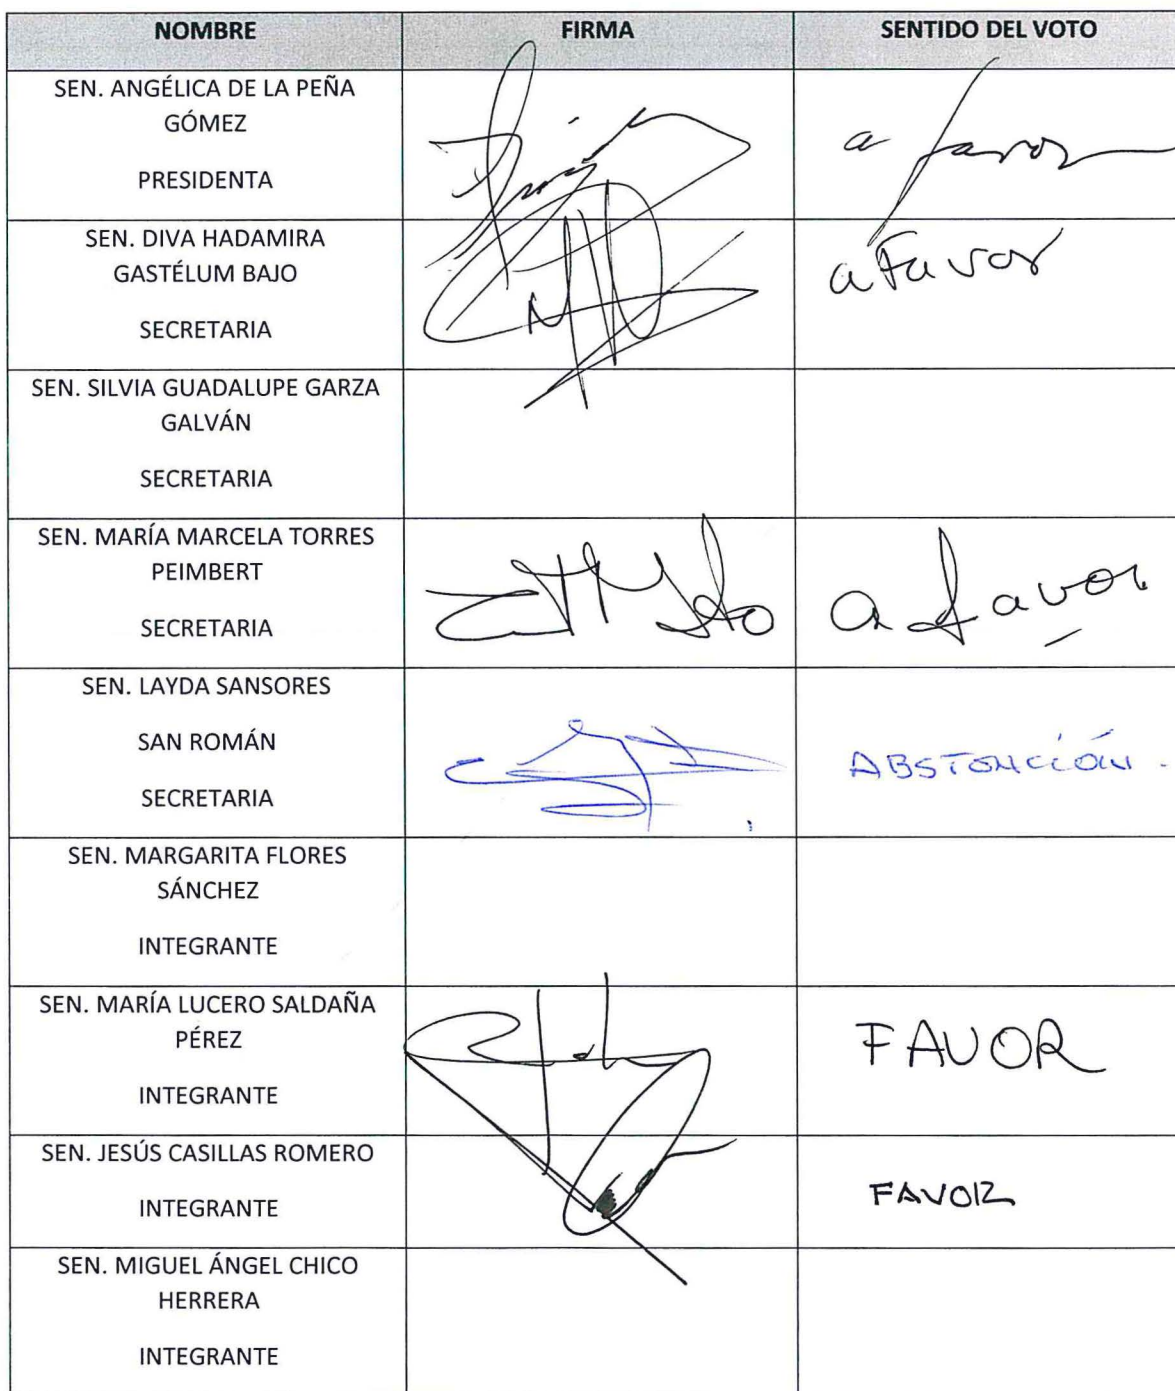 NOMBRE FIRMA SENTIDO DEL VOTO
SEN. ANGÉLICA DE LA PEÑA
GÓMEZ
PRESIDENTA
a favor
SEN. DIVA HADAMIRA
GASTÉLUM BAJO
SECRETARIA
a Favor
SEN. SILVIA GUADALUPE GARZA
GALVÁN
SECRETARIA
SEN. MARÍA MARCELA TORRES
PEIMBERT
SECRETARIA
a favor
SEN. LAYDA SANSORES
SAN ROMÁN
SECRETARIA
ABSTENCIÓN.
SEN. MARGARITA FLORES
SÁNCHEZ
INTEGRANTE
SEN. MARÍA LUCERO SALDAÑA
PÉREZ
INTEGRANTE
FAVOR
SEN. JESÚS CASILLAS ROMERO
INTEGRANTE
FAVOR
SEN. MIGUEL ÁNGEL CHICO
HERRERA
INTEGRANTE